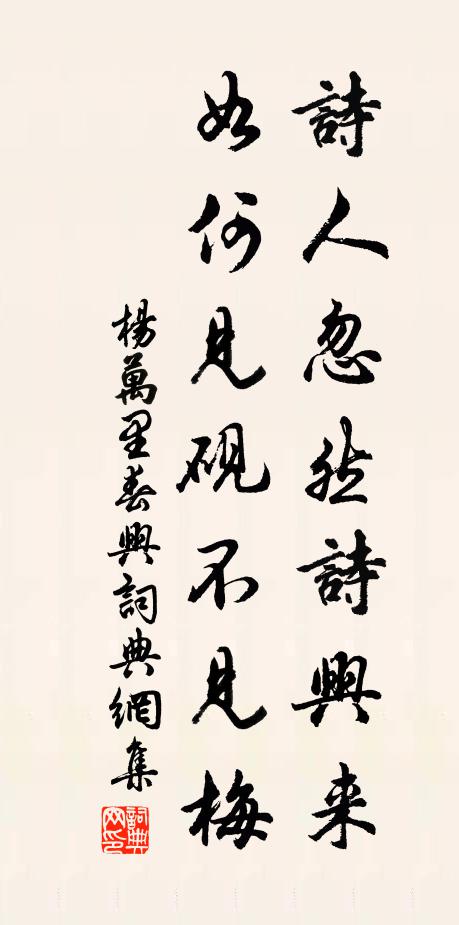 詩人忽然詩興来
如何見硯不見梅
楊萬里春興詞典網集
詞典网印